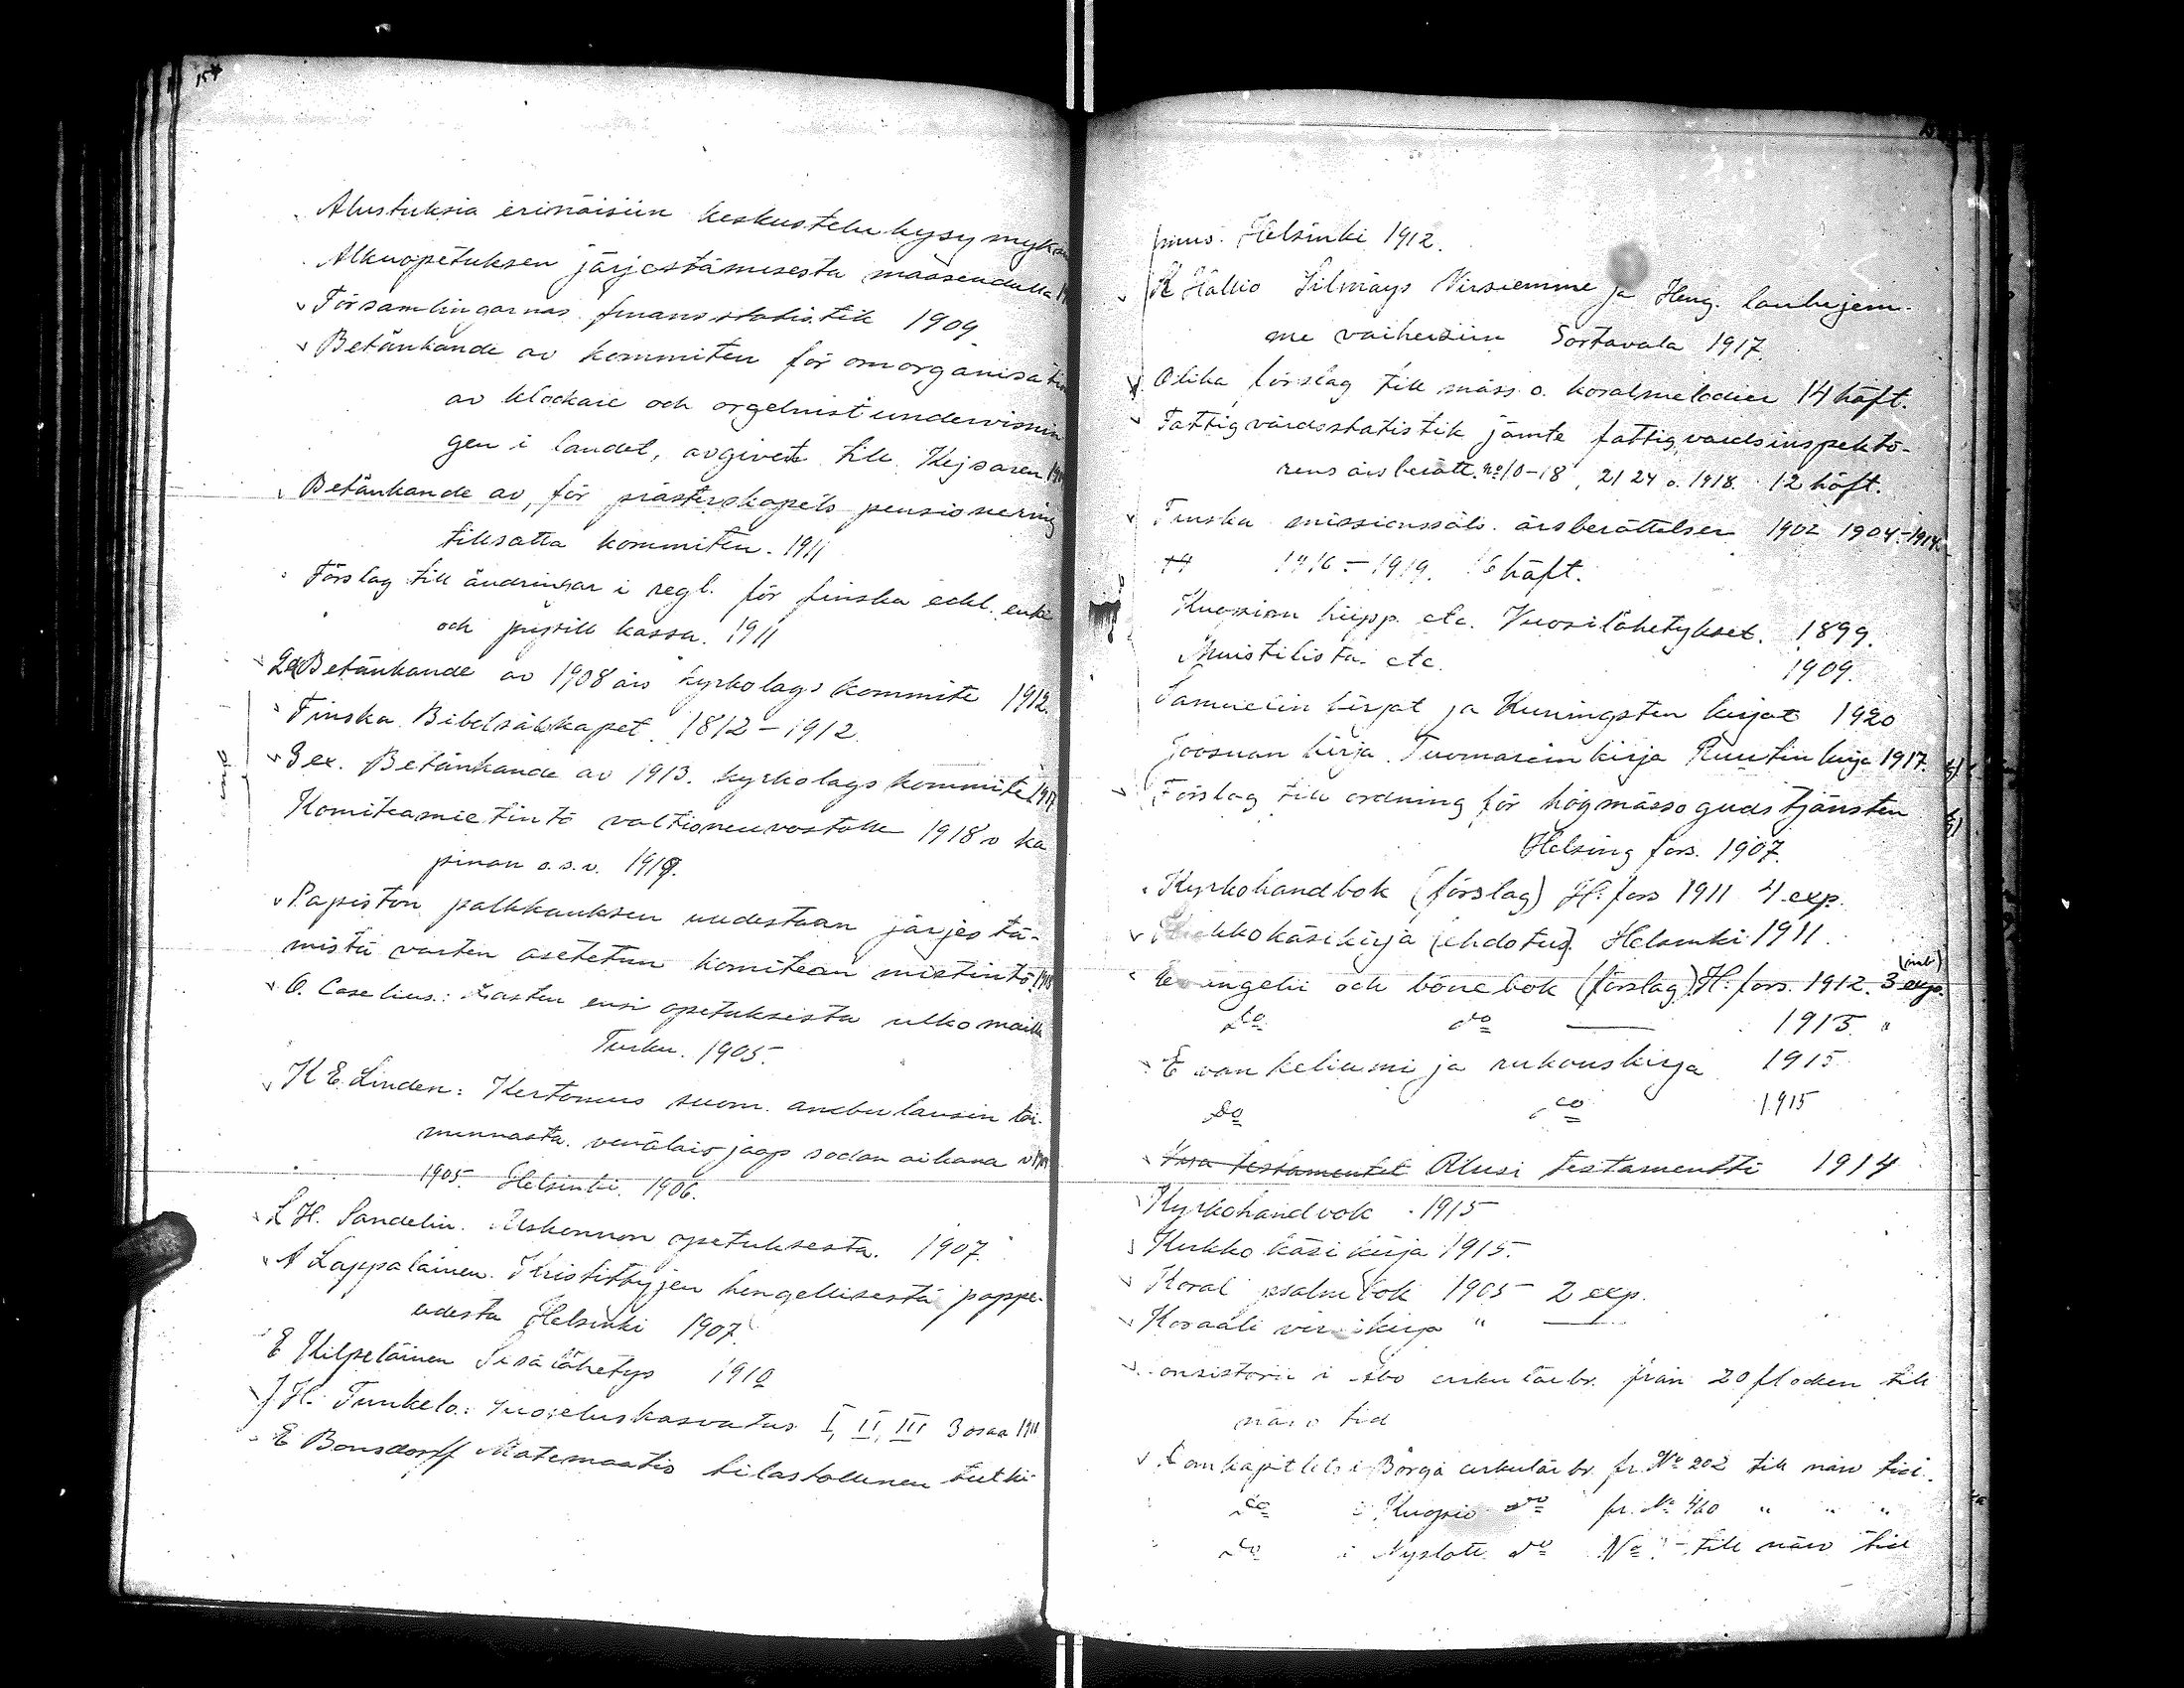 154
Alustuksia erinäisiin keskustelukysymyksi
Alkuopetuksen järjestämisestä maaseudulla
Församlingarnas finansstatistik 1909
Betänkande av kommitén för omorganisation
av klockare och orgelnistundervisnin
gen i landet, avgivet till Kejsaren
Betänkande av, för prästerskapets pensionering
tillsatta kommitén. 1911
Förslag till ändringar i regl. för finska eckl. enke
och pupill kassa. 1911
2 ex Betänkande av 1908 års kyrkolagskommité 1912.
Finska Bibelsälskapet 1812-1912.
3 ex. Betänkande av 1913. kyrkolagskommité
Komiteamietintö valtioneuvostolle 1918 v ka
pinan o.s.v. 1919.
Papiston palkkauksen uudestaan järjestä-
mistä varten asetetun komitean mietintö
O. Caselius.: Lasten ensi opetuksesta ulkomailla
Turku. 1905.
K E. Linden: Kertomus suom. ambulansin toi-
minnasta. venäläis jaap sodan aikana
1905. Helsinki. 1906.
L H. Sandelin. Uskonnon opetuksesta. 1907.
A Lappalainen. Kristittyjen hengellisestä pappe-
udesta Helsinki 1907.
E Kilpeläinen Sisälähetys 1910
J H. Tunkelo: Suojeluskasvatus I, II, III 3 osaa 1911
E Bonsdorff Matemaatis tilastollinen tutki-
mus. Helsinki 1912.
K Hällio Silmäys Virsiemme ja Heng. laulujem-
me vaiheisiin Sortavala 1917.
Olika förslag till mäss o. koralmelodier 14 häft.
Fattigvårdsstatistik jämte fattigvårdsinspektö-
rens årsberätt. No 10-18, 21 24 o. 1918. 12 häft.
Finska missionssäls. årsberättelser 1902 1904-1914
1916-1919. 16 häft.
Kuopion hiipp. etc. Vuosilähetykset. 1899.
Muistilista etc. 1909.
Samuelin kirjat ja Kuningsten kirjat 1920
Joosuan kirja. Tuomarein kirja Ruutin kirja 1917.
Förslag till ordning för högmässogudstjänsten
Helsingfors. 1907.
Kyrkohandbok (förslag) H:fors 1911 4 exp.
Kirkkokäsikirja (ehdotus). Helsinki 1911.
Evangelii och bönebok (förslag) H:fors. 1912. 3 exp. (inb)
Do do 1913. "
Evankeliumi ja rukouskirja 1915
Do do 1915
Nya testamentet Uusi testamentti 1914
Kyrkohandbok 1915
Kirkko käsikirja 1915.
Koral psalmbok 1905 2 exp.
Koraali virsikirja "
Consistorii i Åbo cirkulärbr. från 20 flocken till
närv tid
Domkapitlets i Borgå cirkulärbr. fr. No 202 till närv tid.
Do i Kuopio do fr. No 460 " " "
Do i Nyslott do No 1 - till närv tid